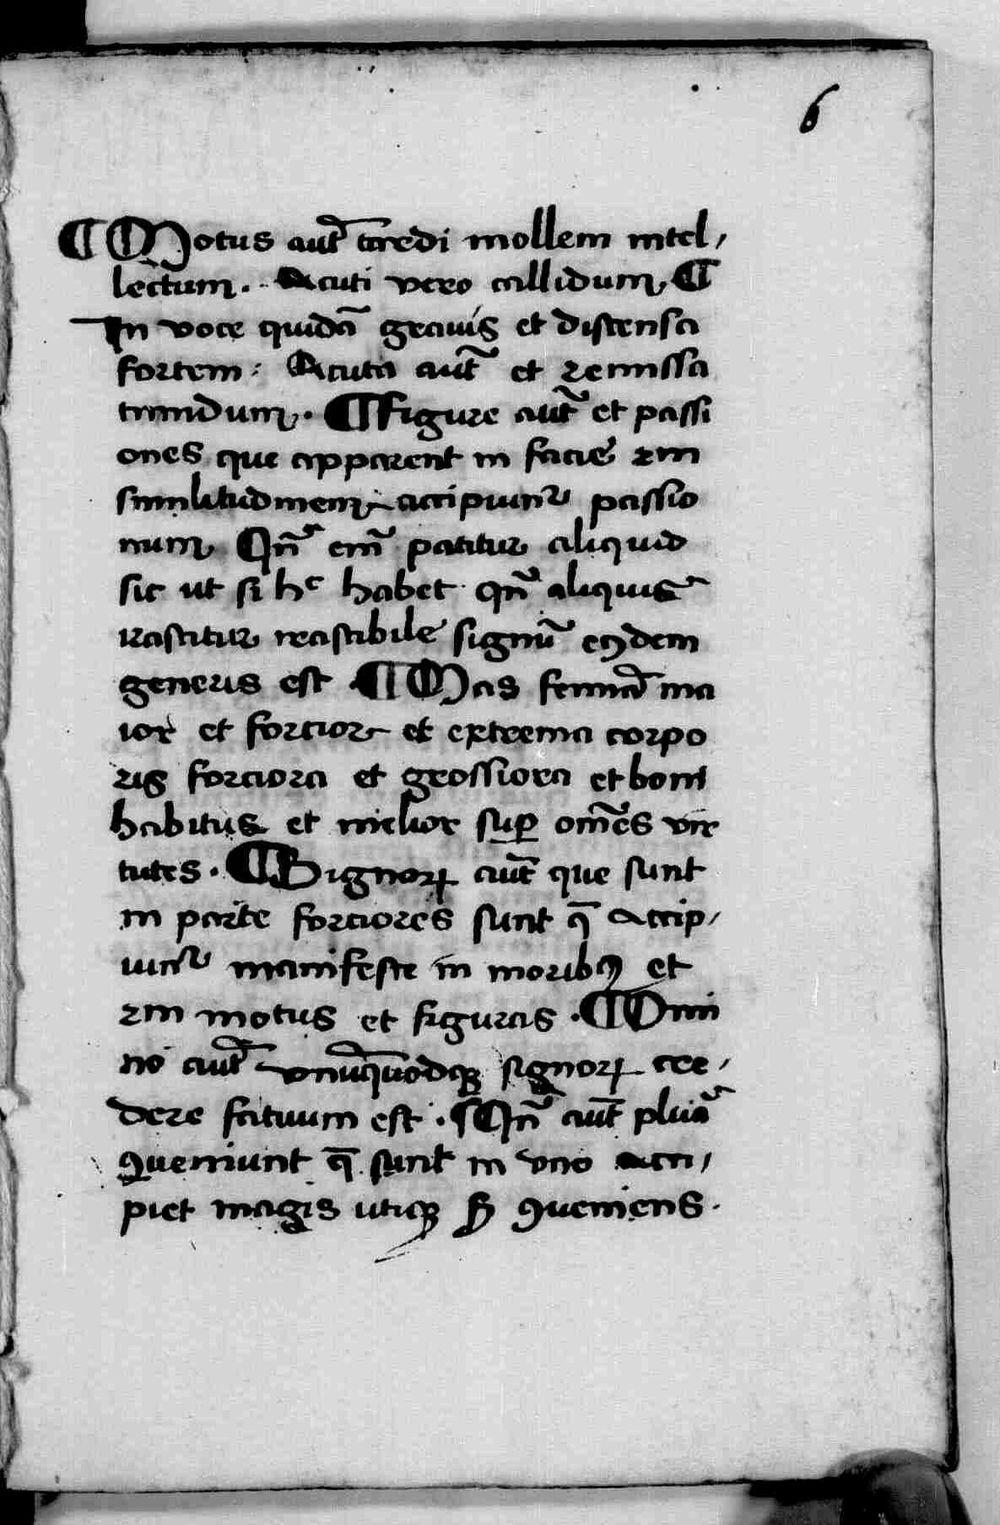 6
¶ Motus aut̃ tardi mollem intel,
lectum. Acuti vero callidum. ¶
In voce quidã grauis et distensa
fortem: Acuta aut̃ et remissa
timidum. ¶ Figure aut̃ et passi
ones que apparent in facie s̃m
similitudinem accipiunt̃ passio
num Qñ em̃ patitur aliquid
sic ut si hc habet qñ aliquis
irascitur irascibile signũ eꝰdem
generis est ¶ Mas femina ma
ior et fortior et extrema corpo
ris forciora et grossiora et boni
habitus et melior suꝑ om̃es vir
tutes. ¶ Signoꝝ aut̃ que sunt
in parte forciores sunt q̃ accip,
iunt̃ manifeste in moribꝰ et
s̃m motus et figuras. ¶ Omi
no aut̃ vnũquodqꝫ signoꝝ cre,
dere fatuum est. ¶ Qñ aut̃ plura
ꝯueniunt q̃ sunt in vno acci,
piet magis utiqꝫ ꝯueniens.